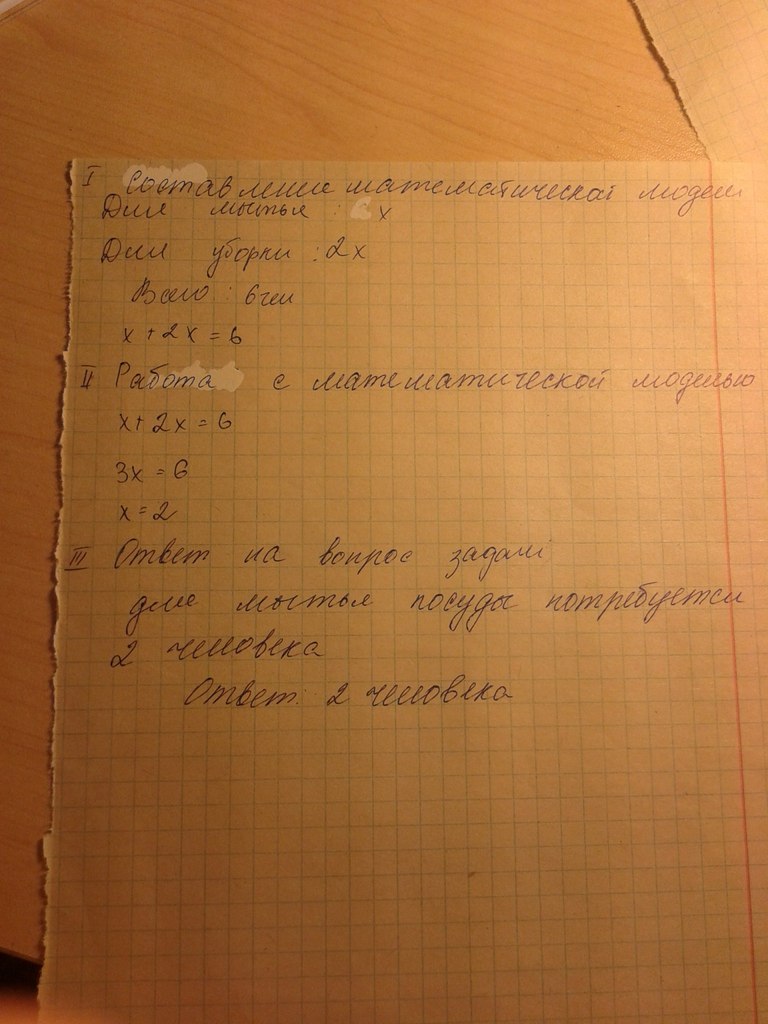 I Составление математической модели
Для мытья : x
Для уборки : 2x
Всего : 6 чел
x + 2x = 6
II Работа с математической моделью
x + 2x = 6
3x = 6
x = 2
III Ответ на вопрос задачи
для мытья посуды потребуется
2 человека
Ответ: 2 человека